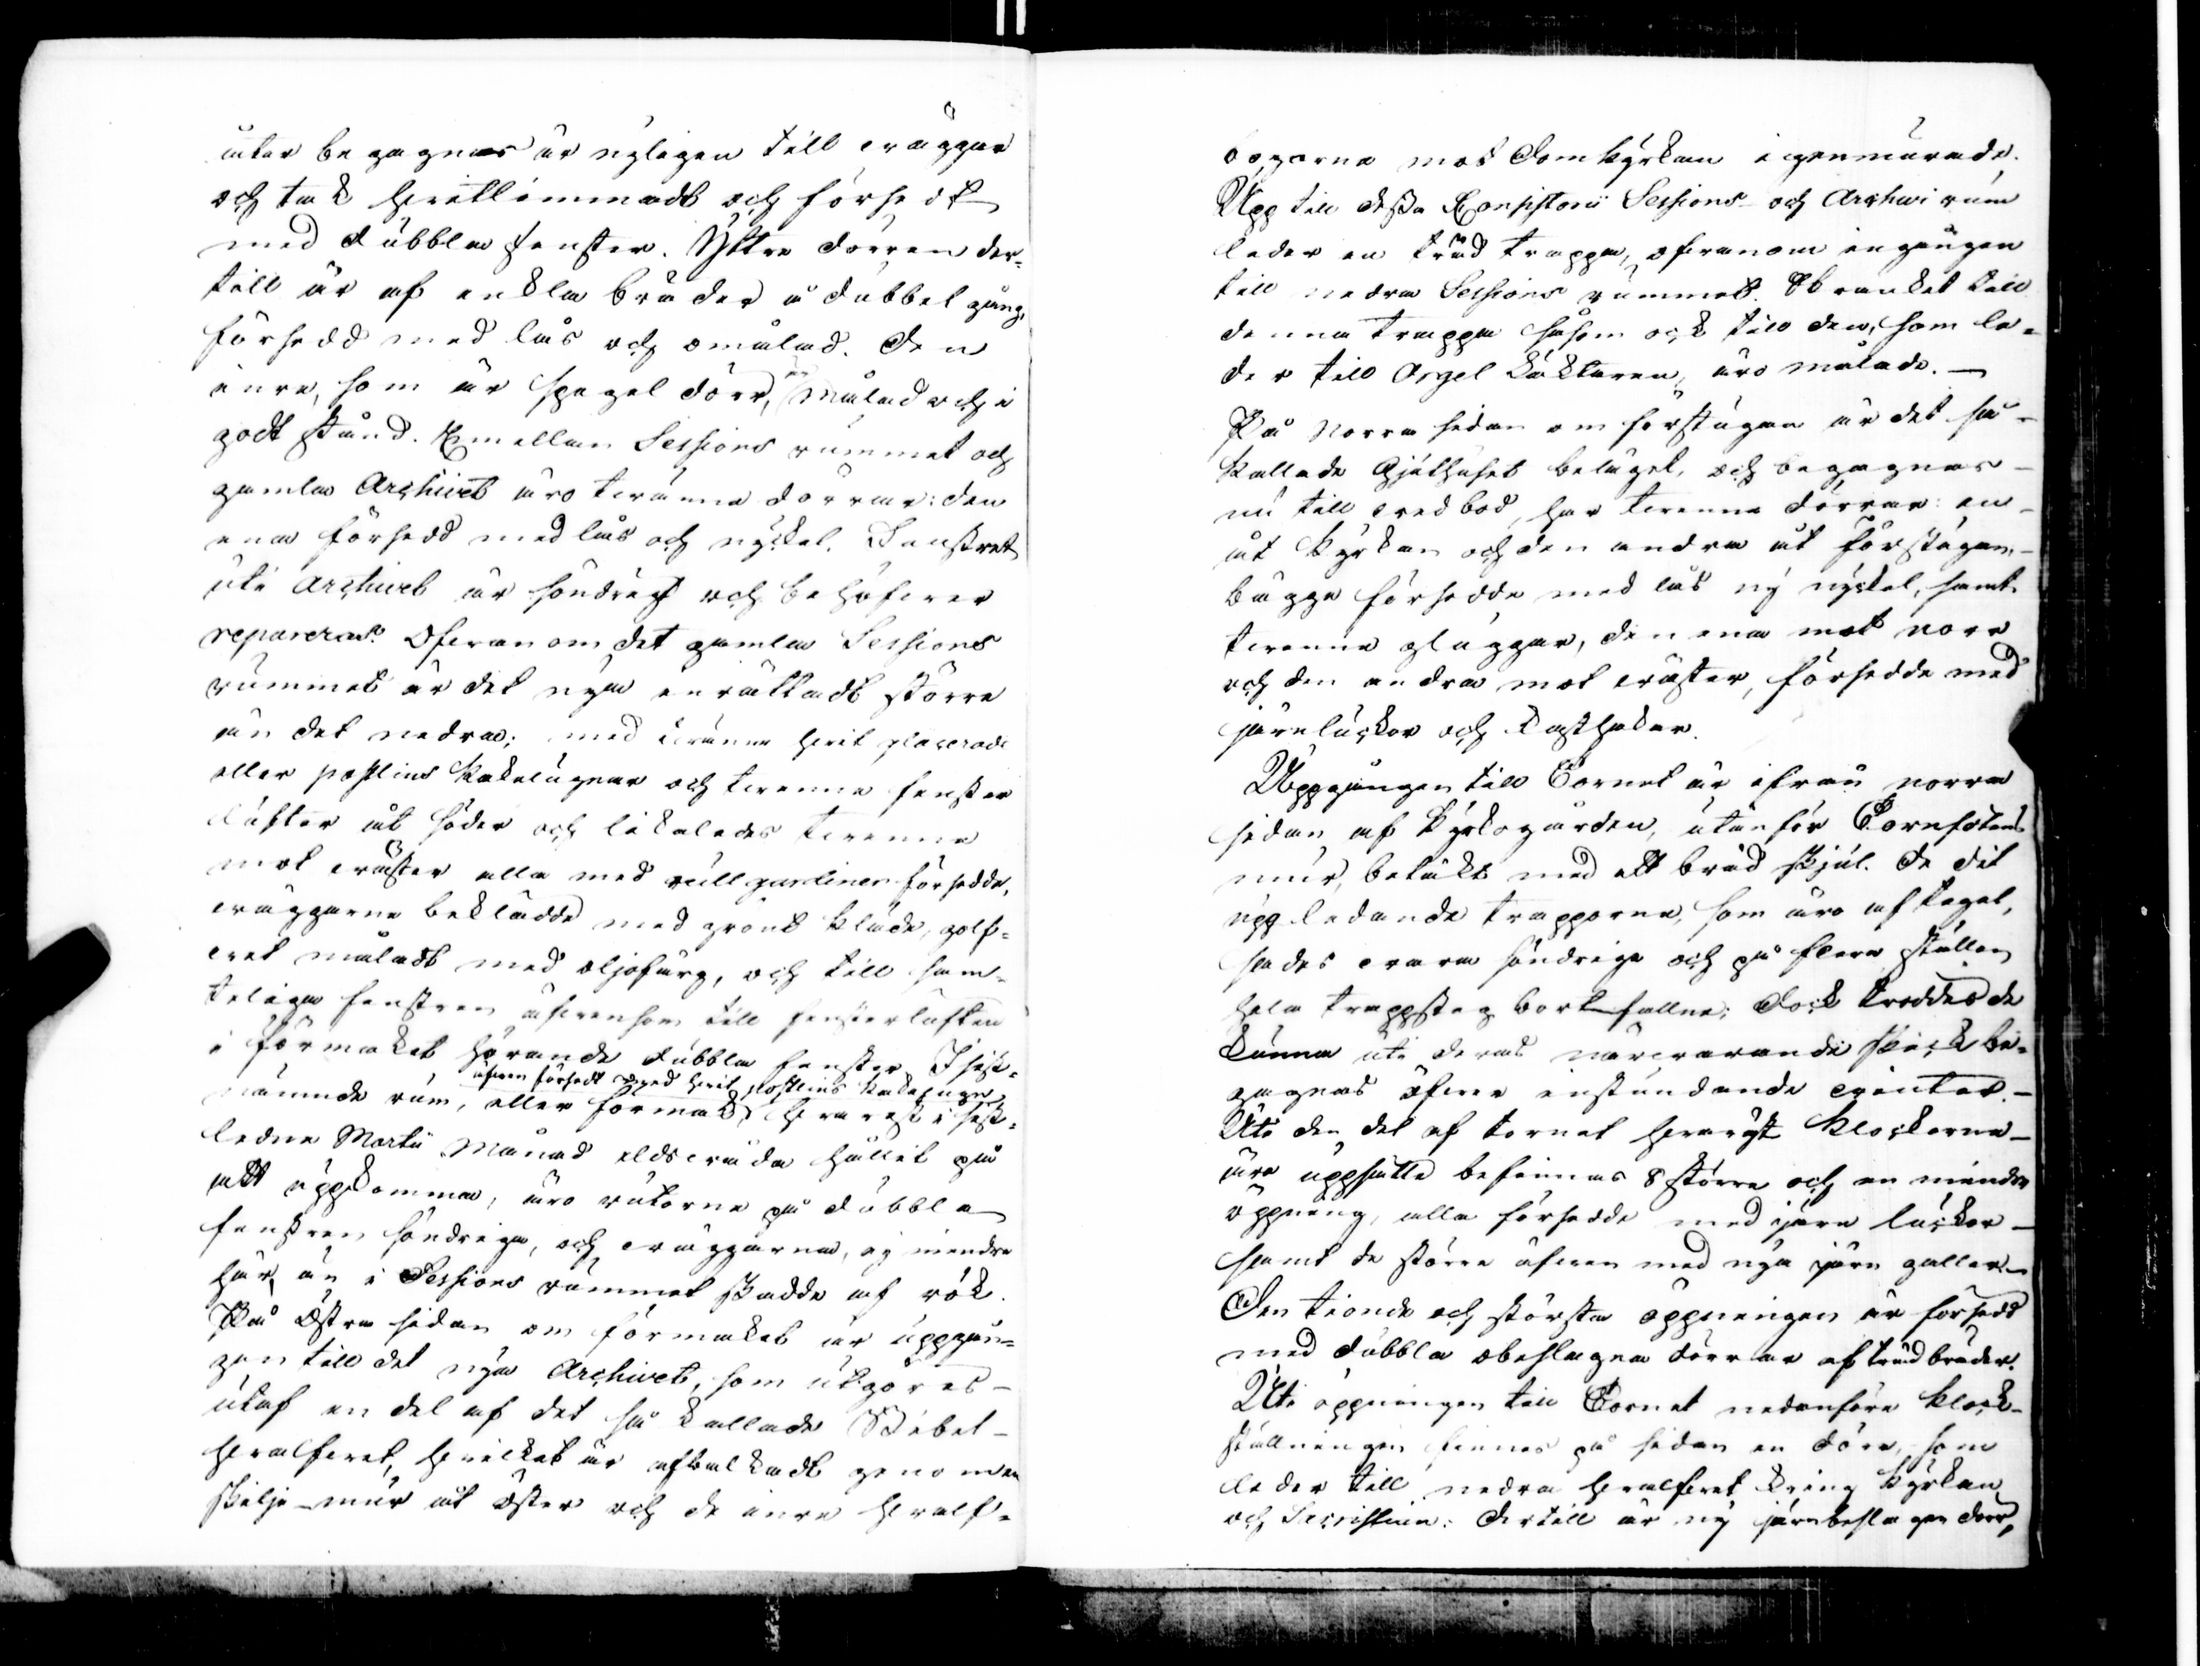 åter begagnas är nyligen till väggar
och tak hvitlimmadt och försedt
med dubbla fenster. Yttre dörren der¬
till är af enkla bräder å dubbel gång,
försedd med lås och omålad. Den
inre, som är spegel dörr, är målad och i
godt stånd. Emellan Sessions rummet och
gamla Archivet äro tvänne dörrar: den
ena försedd med lås och nyckel. Fenstret
uti Archivet är söndrigt och behöfver
repareras. Ofvanom det gamla Sessions
rummet är det nya inrättadt större
än det nedra; med tvänne hvit glaserade
eller postlins kakelugnar och tvenne fenster
lufter åt söder och likaledes tvenne
mot väster alla med rullgardiner försedde,
väggarne beklädde med grönt kläde, golf¬
vet måladt med oljefärg, och till sam¬
teliga fenstren äfvensom till fensterluften
i förmaket hörande dubbla fenster. I sist¬
äfven försedt med hvit postlins kakelugn
nämnde rum, eller förmak, hvarest i sist¬
ledne Martii Månad eldsvåda hållit på
att uppkomma, äro rutorne på dubbla
fenstren söndriga, och väggarna, ej mindre
här, än i Sessions rummet skadde af rök.
På Östra sidan om förmaket är uppgån¬
gen till det nya Archivet, som utgöres
utaf en del af det så kallade
hvalfvet, hvilket är afbalkadt genom en
skilje-mur åt öster och de inre hvalf¬
bogarne mot Domkyrkan igenmurade.
Upp till dessa Consistorii Sessions- och Archivi rum
leder en träd trappa, ofvanom ingången
till nedra Sessions rummet. Skranket till
denna trappa såsom ock till den, som le¬
der till Orgel Läktaren, äro målade. —
På Norra sidan om förstugan är det så¬
kallade Gjuthuset beläget, och begagnas
nu till vedbod, har tvenne dörrar: en
åt Kyrkan och den andra åt förstugan,
bägge försedde med lås ny nyckel, samt
tvenne gluggar, den ena mot norr
och den andra mot väster, försedde med
järnluckor och kasthakar.
Uppgången till Tornet är ifrån norra
sidan af Kyrkogården, utanför Tornfotens
mur, betäkt med ett bräd skjul. De dit
upp ledande trapporne, som äro af tegel,
sades vara söndriga och på flera ställen
hela trappsteg bortfallne; Dock troddes de
kunna uti deras närvarande skick be¬
gagnas öfver instundande vinter.—
Uti den del af tornet hvaräst Klockorna
äro uppsatte befinnas 8 större och en mindre
öppning, alla försedde med järn luckor
samt de större äfven med nya järn galler.
Den tionde och största öppningen är försedd
med dubbla obeslagna dörrar af trädbräder.
Uti öppningen till Tornet nedanföre Klock¬
ställningen finnes på sidan en dörr, som
leder till nedra hvalfvet kring Kyrkan
och Sacristian: Dertill är ny järnbeslagen dörr,